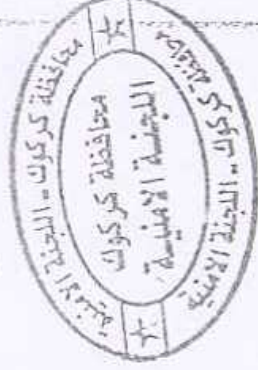 محافظة كركوك - اللجنة الامنية
محافظة كركوك
اللجنة الامنية
محافظة كركوك - اللجنة الامنية